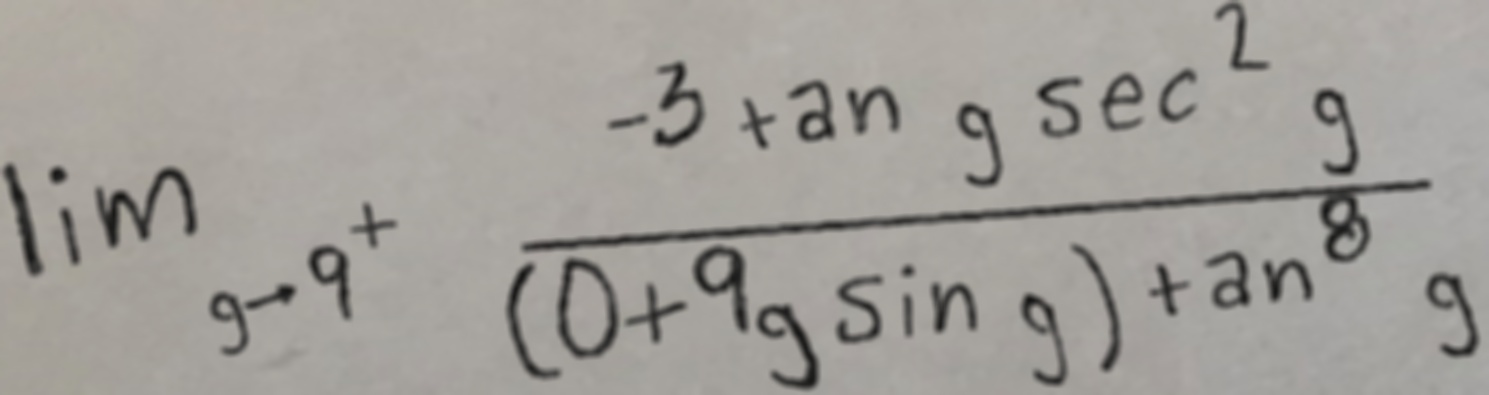 lim g→9⁺ (-3 tan g sec² g) / ((0+9g sin g) tan⁸ g)